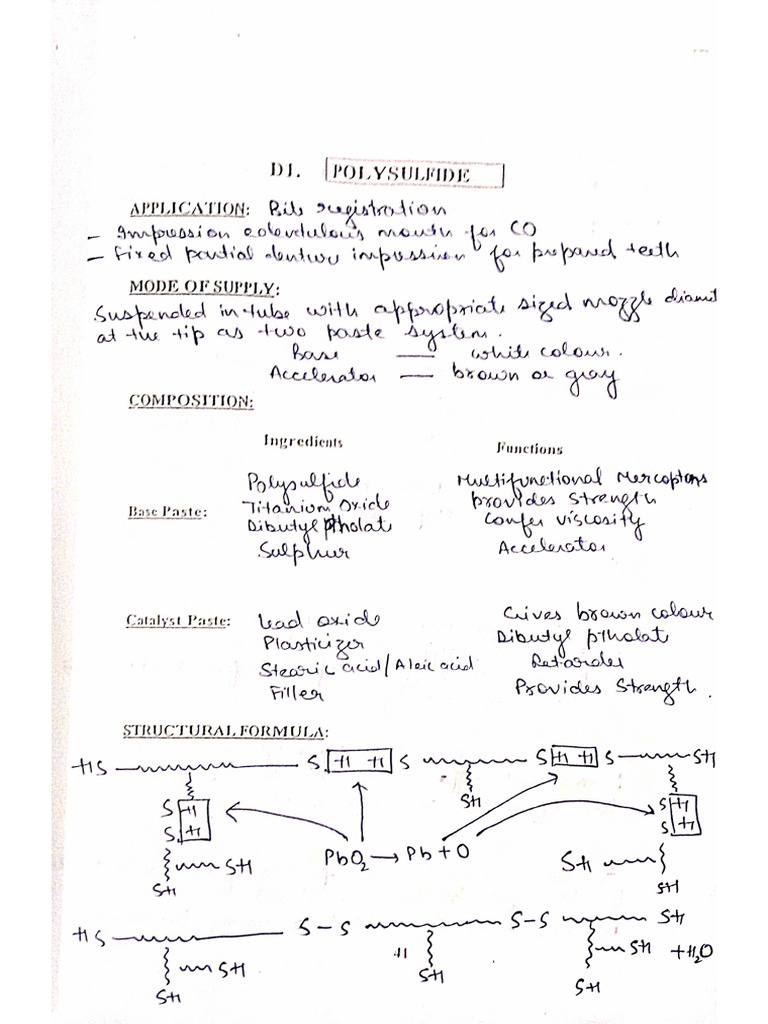 D1. POLYSULFIDE
APPLICATION: Bite registration
- Impression edentulous mouth for CD
- Fixed partial denture impression for prepared teeth
MODE OF SUPPLY:
Suspended in tube with appropriate sized nozzle diamet
at the tip as two paste system.
Base — white colour.
Accelerator — brown or gray
COMPOSITION:
Ingredients Functions
Polysulfide Multifunctional Mercoptans
Titanium Oxide Provides Strength
Base Paste: Dibutyl pthalat Confer viscosity
Sulphur Accelerator
Catalyst Paste: Lead oxide Gives brown colour
Plasticizer Dibutyl pthalat
Stearic acid/Aleic acid Retarder
Filler Provides Strength.
STRUCTURAL FORMULA:
HS S H H S S H H S SH
SH
S H S H
S H S H
PbO2 → Pb + O
SH SH
SH SH
HS S-S S-S SH
SH H SH SH + H2O
SH SH